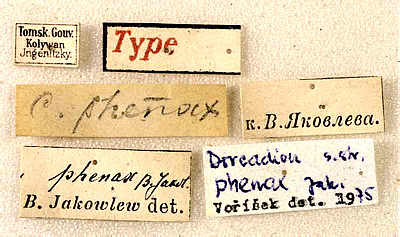 Tomsk. Gouv.
Kolywan
Jngenitzky.
Type
C. phenax
к. В. Яковлева.
phenax B. Jakol.
B. Jakowlew det.
Dorcadion s.str.
phenax Jak.
Voříšek det. 1975